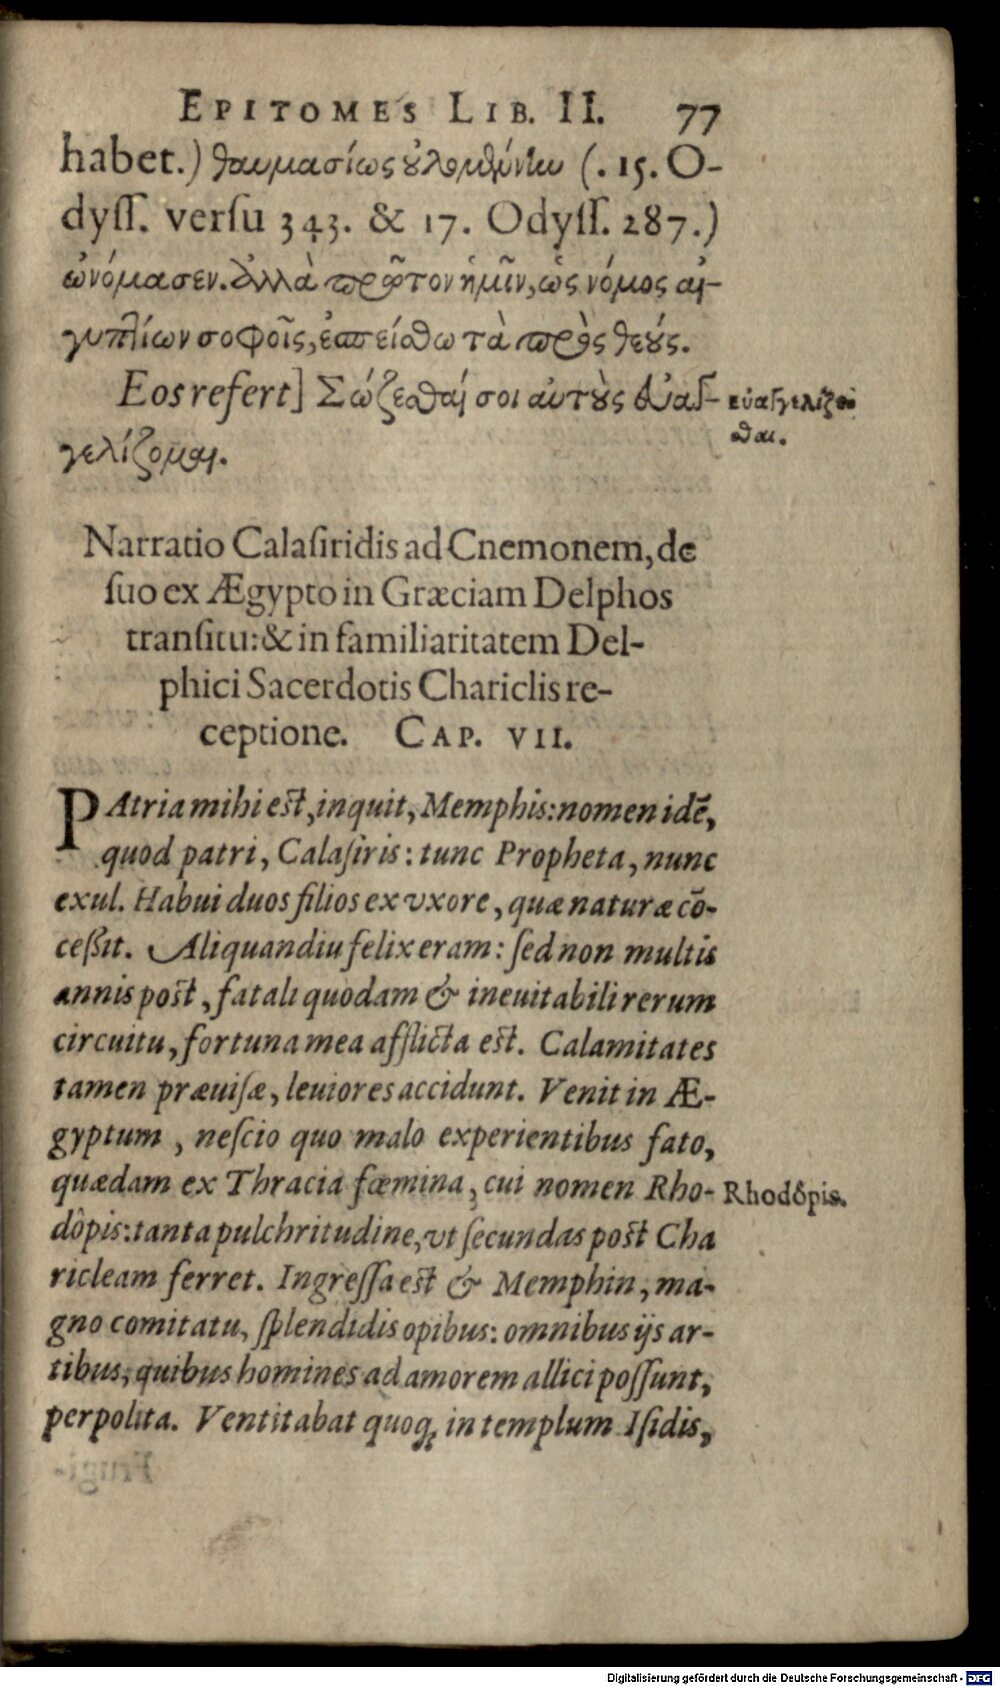 EPITOMES LIB. II. 77
habet.) θαυμασίως οὐλομένην (. 15. O-
dyſſ. verſu 343. & 17. Odyſſ. 287.)
ὠνόμασεν. ἀλλὰ πρῶτον ἡμῖν, ὡς νόμος αἰ-
γυπτίων σοφοῖς, ἐσπείσθω τὰ πρὸς θεούς.
Eos refert] Σώζεσθαί σοι αὐτοὺς εὐαγ-
γελίζομαι.
εὐαγγελίζε-
σθαι.
Narratio Calaſiridis ad Cnemonem, de
ſuo ex Ægypto in Græciam Delphos
tranſitu: & in familiaritatem Del-
phici Sacerdotis Chariclis re-
ceptione. CAP. VII.
PAtria mihi eſt, inquit, Memphis: nomen idē,
quod patri, Calaſiris: tunc Propheta, nunc
exul. Habui duos filios ex vxore, quæ naturæ cō-
ceßit. Aliquandiu felix eram: ſed non multis
annis poſt, fatali quodam & ineuitabili rerum
circuitu, fortuna mea afflicta eſt. Calamitates
tamen præuiſæ, leuiores accidunt. Venit in Æ-
gyptum, neſcio quo malo experientibus fato,
quædam ex Thracia fœmina, cui nomen Rho-
Rhodôpis.
dôpis: tanta pulchritudine, vt ſecundas poſt Cha
ricleam ferret. Ingreſſa eſt & Memphin, ma-
gno comitatu, ſplendidis opibus: omnibus ijs ar-
tibus, quibus homines ad amorem allici poſſunt,
perpolita. Ventitabat quoq; in templum Iſidis,
Frugi-
Digitalisierung gefördert durch die Deutsche Forschungsgemeinschaft - DFG